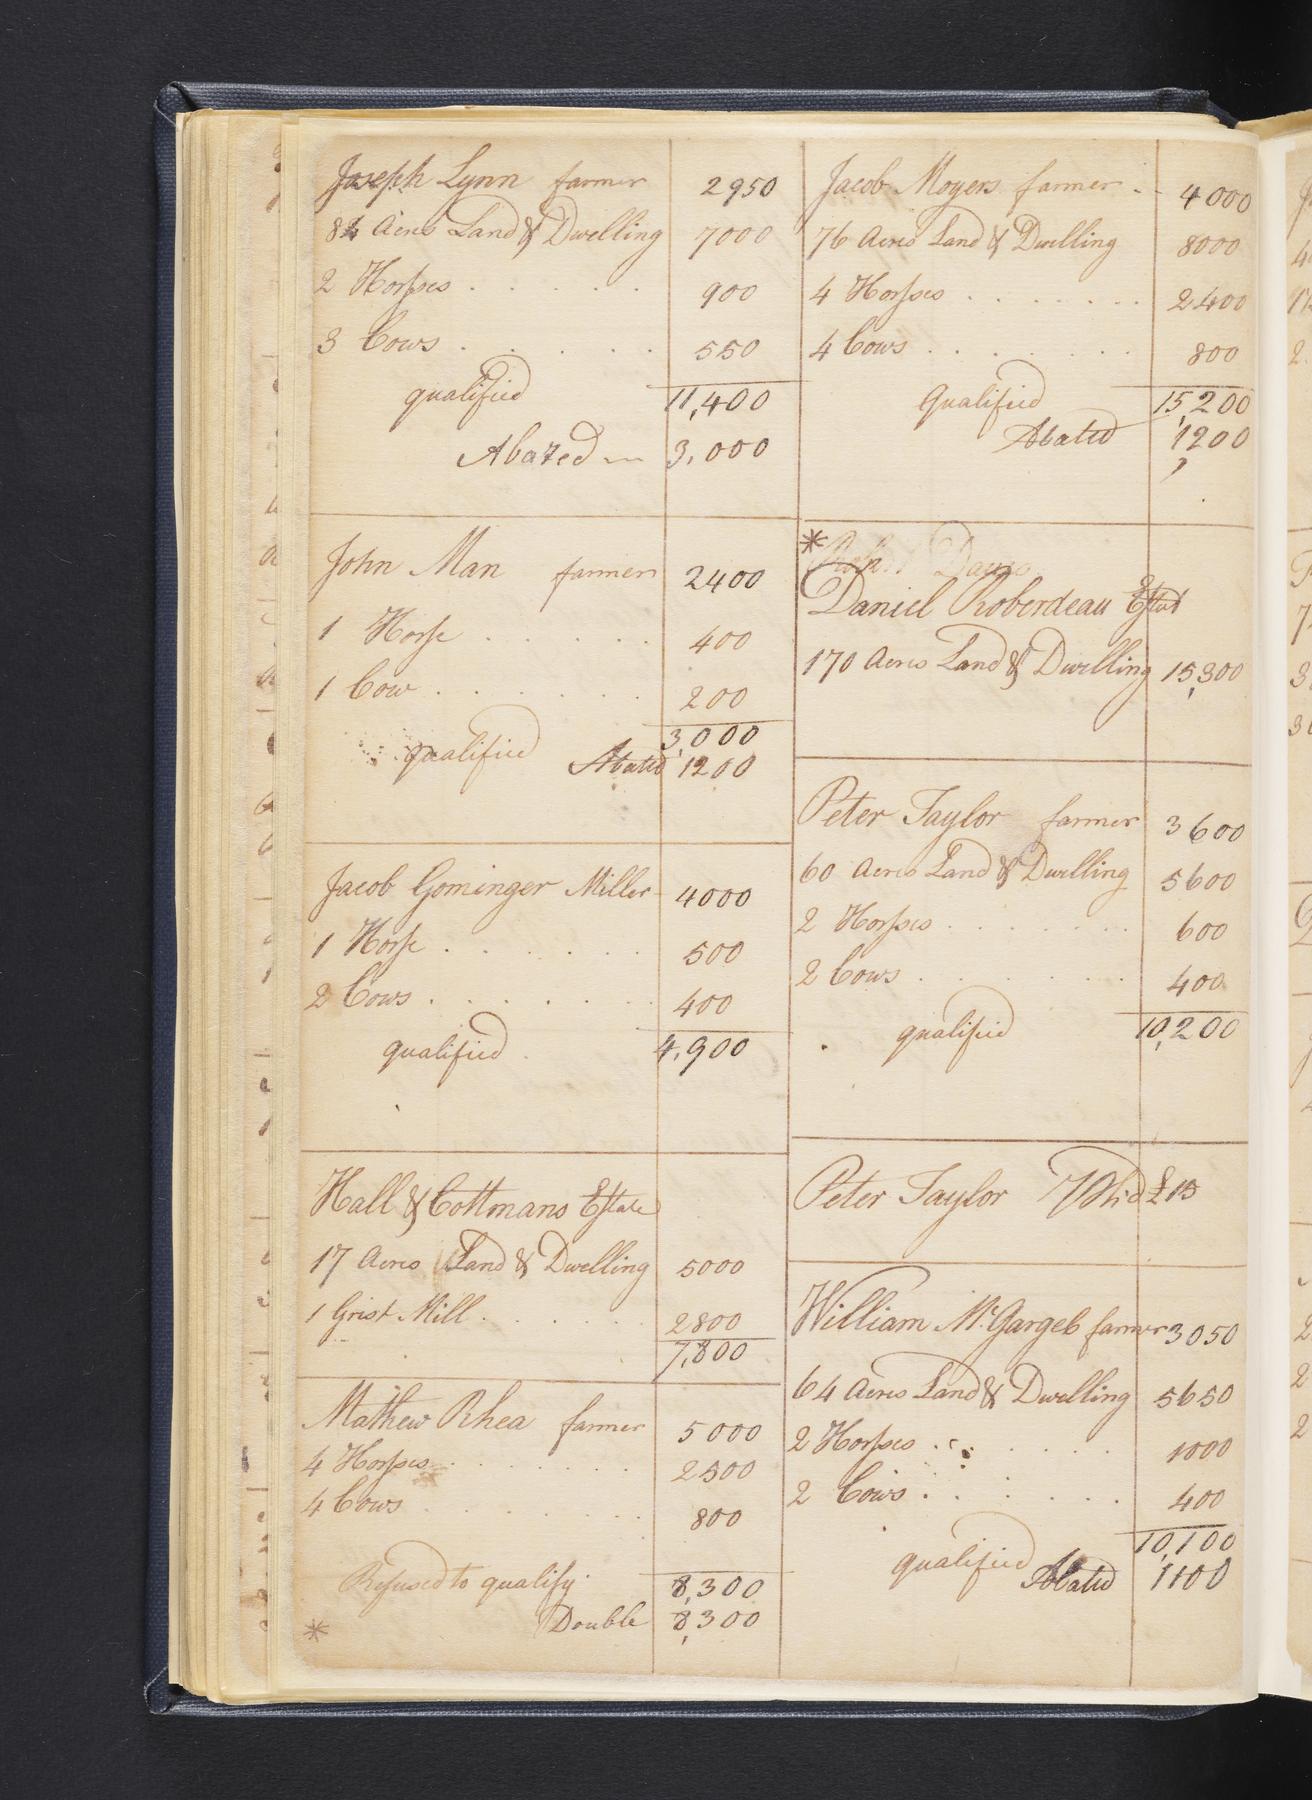 Joseph Lynn farmer 2950
84 Acres Land & Dwelling 7000
2 Horses . . . . . 900
3 Cows . . . . . 550
qualified 11,400
Abated 3,000
John Man farmer 2400
1 Horse . . . . . . 400
1 Cow . . . . . . 200
qualified 3,000
Abated 1200
Jacob Gominger Miller 4000
1 Horse . . . . . . 500
2 Cows . . . . . . 400
qualified 4,900
Hall & Cottmans Estate
17 Acres Land & Dwelling 5000
1 Grist Mill . . . . . 2800
7,800
Mathew Rhea farmer 5000
4 Horses . . . . . . 2500
4 Cows . . . . . . 800
Refused to qualify 8,300
* Double 8,300
Jacob Moyers farmer 4000
76 Acres Land & Dwelling 8000
4 Horses . . . . . . 2400
4 Cows . . . . . . 800
Qualified 15,200
Abated 1200
*
Daniel Roberdeau Estat
170 Acres Land & Dwelling 15,300
Peter Taylor farmer 3600
60 Acres Land & Dwelling 5600
2 Horses . . . . . . 600
2 Cows . . . . . . 400
qualified 10,200
Peter Taylor £15
William McGargeb farmer 3050
64 Acres Land & Dwelling 5650
2 Horses . . . . . . 1000
2 Cows . . . . . . 400
10,100
qualified Abated 1100